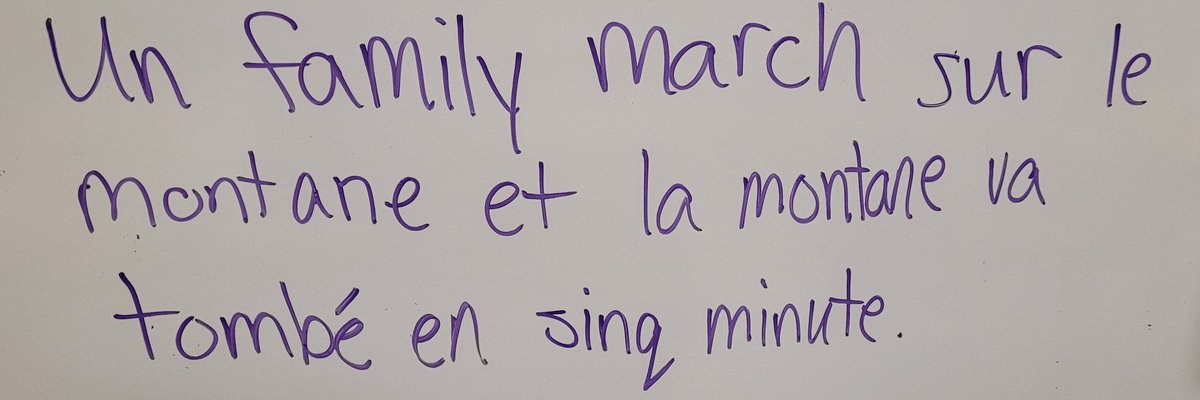 Un family march sur le
montane et la montane va
tombé en sinq minute.